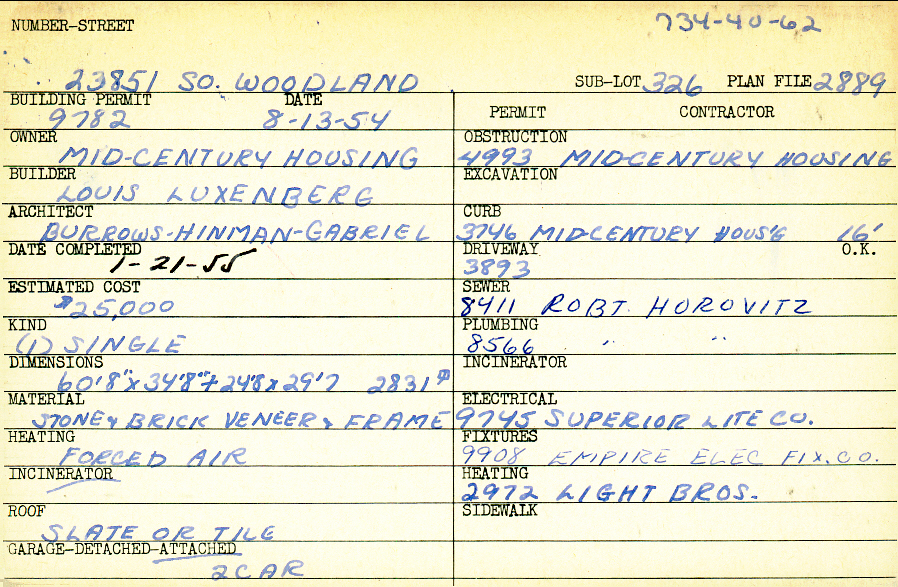 NUMBER-STREET 734-40-62
23851 SO. WOODLAND SUB-LOT 326 PLAN FILE 2889
BUILDING PERMIT DATE
9782 8-13-54
PERMIT CONTRACTOR
OWNER
MID-CENTURY HOUSING
OBSTRUCTION
4993 MID-CENTURY HOUSING
BUILDER
LOUIS LUXENBERG
EXCAVATION
ARCHITECT
BURROWS-HINMAN-GABRIEL
CURB
3746 MID-CENTURY HOUS'G 16'
DATE COMPLETED
1-21-55
DRIVEWAY O.K.
3893
ESTIMATED COST
$25,000
SEWER
8411 ROBT. HOROVITZ
KIND
(1) SINGLE
PLUMBING
8566 " "
DIMENSIONS
60'8"x34'8"+24'8x29'7 2831
INCINERATOR
MATERIAL
STONE & BRICK VENEER & FRAME
ELECTRICAL
9745 SUPERIOR LITE CO.
HEATING
FORCED AIR
FIXTURES
9908 EMPIRE ELEC FIX. CO.
INCINERATOR
HEATING
2972 LIGHT BROS.
ROOF
SLATE OR TILE
SIDEWALK
GARAGE-DETACHED-ATTACHED
2 CAR